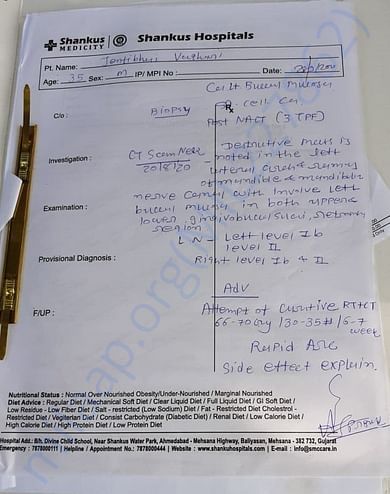 Shankus
MEDICITY
Shankus Hospitals
Pt. Name:
Age: 35 Sex: M IP/ MPI No : Date:
Ca Lt. Buccal Mucosa
C/o : Biopsy cell Ca
Post NACT (3 TPF)
Investigation : CT Scan Neck Destructive mass is
20/8/20 noted in the left
lateral and ramus
of mandible & mandible
Examination : nerve canal with involve left
buccal in both upper &
lower gingivobuccal sulci, retromolar
region
LN - Left level Ib
level II
Provisional Diagnosis : Right level Ib & II
Adv
F/UP : Attempt of curative RT+CT
66-70Gy /30-35# /6-7
week
Rapid Arc
Side effect explain.
Nutritional Status : Normal Over Nourished Obesity/Under-Nourished / Marginal Nourished
Diet Advice : Regular Diet / Mechanical Soft Diet / Clear Liquid Diet / Full Liquid Diet / GI Soft Diet /
Low Residue - Low Fiber Diet / Salt - restricted (Low Sodium) Diet / Fat - Restricted Diet Cholestrol -
Restricted Diet / Vegiterian Diet / Consist Carbohydrate (Diabetic Diet) / Renal Diet / Low Calorie Diet /
High Calorie Diet / High Protein Diet / Low Protein Diet
Hospital Add.: B/h. Divine Child School, Near Shankus Water Park, Ahmedabad - Mehsana Highway, Baliyasan, Mehsana - 382 732, Gujarat
Emergency : 7878000111 | Helpline / Appointment No.: 7878000444 | Website : www.shankushospitals.com | E-mail : info@smccare.in